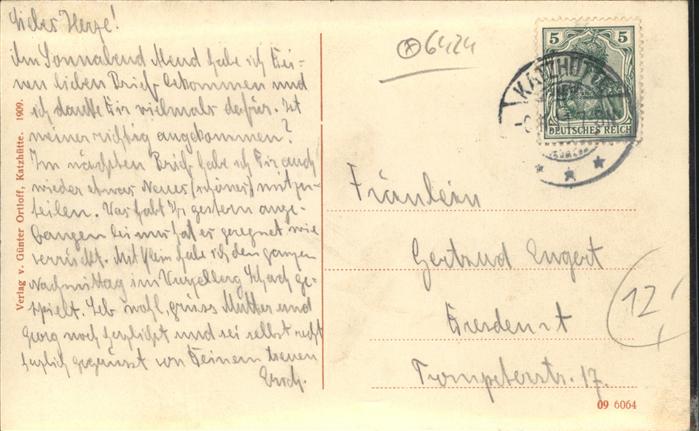 Liebes Herze!
Am Sonnabend Abend habe ich Dei-
nen lieben Brief bekommen und
ich danke Dir vielmals dafür. Ist
meiner richtig angekommen?
Im nächsten Brief habe ich Dir auch
wieder etwas Neues (schönes) mitzu-
teilen. Was habt Ihr gestern ange-
fangen bei mir hat es geregnet wie
verrückt. Mit habe ich den ganzen
Nachmittag im Schach ge-
spielt. Leb wohl, grüss Mutter und
Georg noch herzlichst und sei selbst recht
herzlich gegrüsst von Deinem treuen
Erich.
Verlag v. Günter Ortloff, Katzhütte. 1909.
6424
5 5
DEUTSCHES REICH
KATZHÜTTE
Fräulein
Gertrud Engert
Dresden-A
Trompeterstr. 17.
12,
09 6064